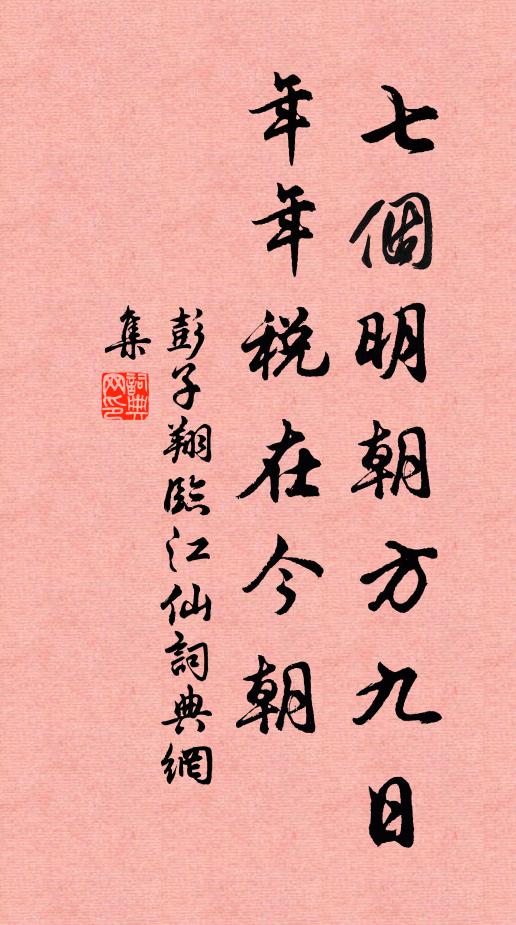 七個明朝方九日
年年税在今朝
彭子翔臨江仙詞典網
集
詞典
网印